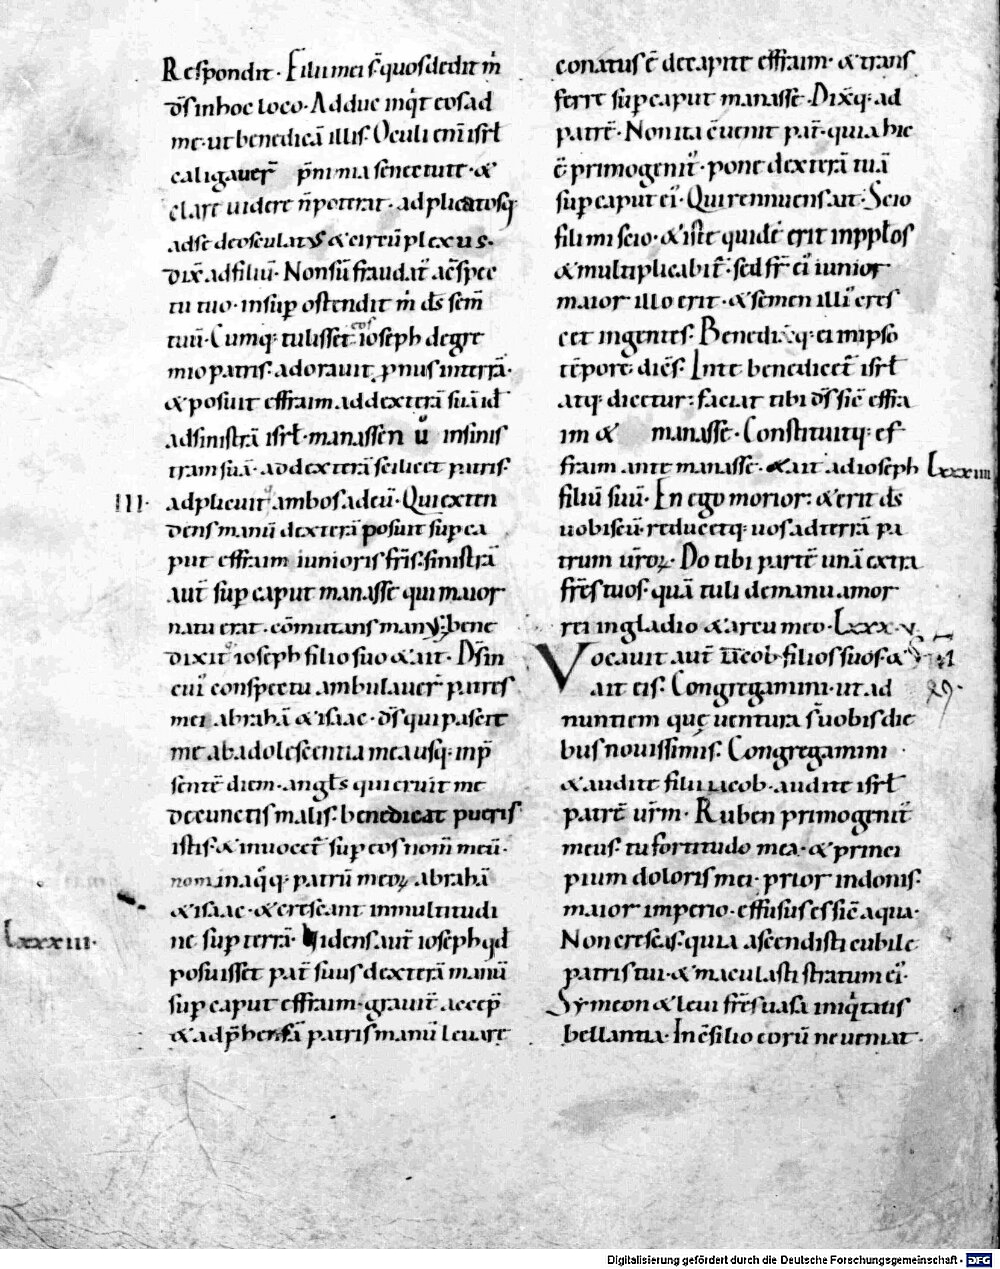 Respondit · Filii mei s̄ quos dedit m̄
d̄s in hoc loco · Adduc inq̇t eos ad
me · ut benedicā illis · Oculi enī isrl̄
caligauer̄ p̄ nimia senectute · &
clare uidere n̄ poterat · adplicatosq;
ad se deosculatus & circūplexus ·
dix̄ ad filiū · Non sū fraudat᷒ aspec
tu tuo · insup̄ ostendit m̄ d̄s sem̄
tuū · Cumq; tulisset eos ioseph de gre
mio patris · adorauit pnus in terrā ·
& posuit effraim ad dexterā suā id̄
ad sinistrā isrl̄ · manassen ū in sinis
tra in suā · ad dexterā scilicet patris ·
III · adplicuit ambos ad eū · Qui exten
dens manū dexterā posuit sup ca
put effraim iunioris fr̄is · sinistrā
aut̄ sup caput manasse qui maior
natu erat · cōmutans man᷒ · bene
dixit ioseph filio suo & ait · D̄s in
cui᷒ conspectu ambulauer̄ patres
mei abrahā & isaac · d̄s qui pascit
me ab adolescentia mea usq; in p̄
sentē diem · angl̄s qui eruit me
de cunctis malis · benedicat pueris
istis · & inuocet᷒ sup eos nom̄ meū ·
nomina q̇q; patrū meoꝝ abrahā
& isaac · & crescant in multitudi
lxxxiii · ne sup terrā · Uidens aut̄ ioseph qd̄
posuisset pat̄ suus dexterā manū
sup caput effraim · grauit̄ accep̄
& adp̄hensā patris manū leuare
conatus ē de capite effraim · & trans
ferre sup caput manasse · Dixq; ad
patrē · Non ita cuenit pat̄ · quia hic
ē primogenit᷒ · pone dexterā tuā
sup caput ei᷒ · Qui rennuens ait · Scio
fili mi scio · & iste quidē erit in ppl̄os
& multiplicabit᷒ · sed fr̄ ei᷒ iunior
maior illo erit · & semen illi᷒ cres
cet in gentes · Benedixq; ei in ipso
tēpore dicēs · In te benedicet᷒ isrl̄
atq; dicetur : faciat tibi d̄s sic̄ effra
im & manasse · Constituitq; ef
fraim ante manasse · & ait ad ioseph lxxxiiii
filiū suū · En ego morior : & erit d̄s
uobiscū · reducetq; uos ad terrā pa
trum ur̄oꝝ · Do tibi partē unā extra
fr̄es tuos · quā tuli de manu amor
rei in gladio & arcu meo · Lxxx·v·
Vocauit aut̄ iacob filios suos · &
ait eis · Congregamini · ut ad
nuntiem que uentura s̄ uobis die
bus nouissimis · Congregamini ·
& audite filii iacob · audite isrl̄
patrē ur̄m · Ruben primogenit᷒
meus · tu fortitudo mea · & princi
pium doloris mei · prior in donis ·
maior imperio · effusus es sic̄ aqua ·
Non crescas · quia ascendisti cubile
patris tui · & maculasti stratum ei᷒ ·
Symeon & leui fr̄es uasa iniq̇tatis
bellantia · In c̄silio eorū ne ueniat ·
Digitalisierung gefördert durch die Deutsche Forschungsgemeinschaft - DFG